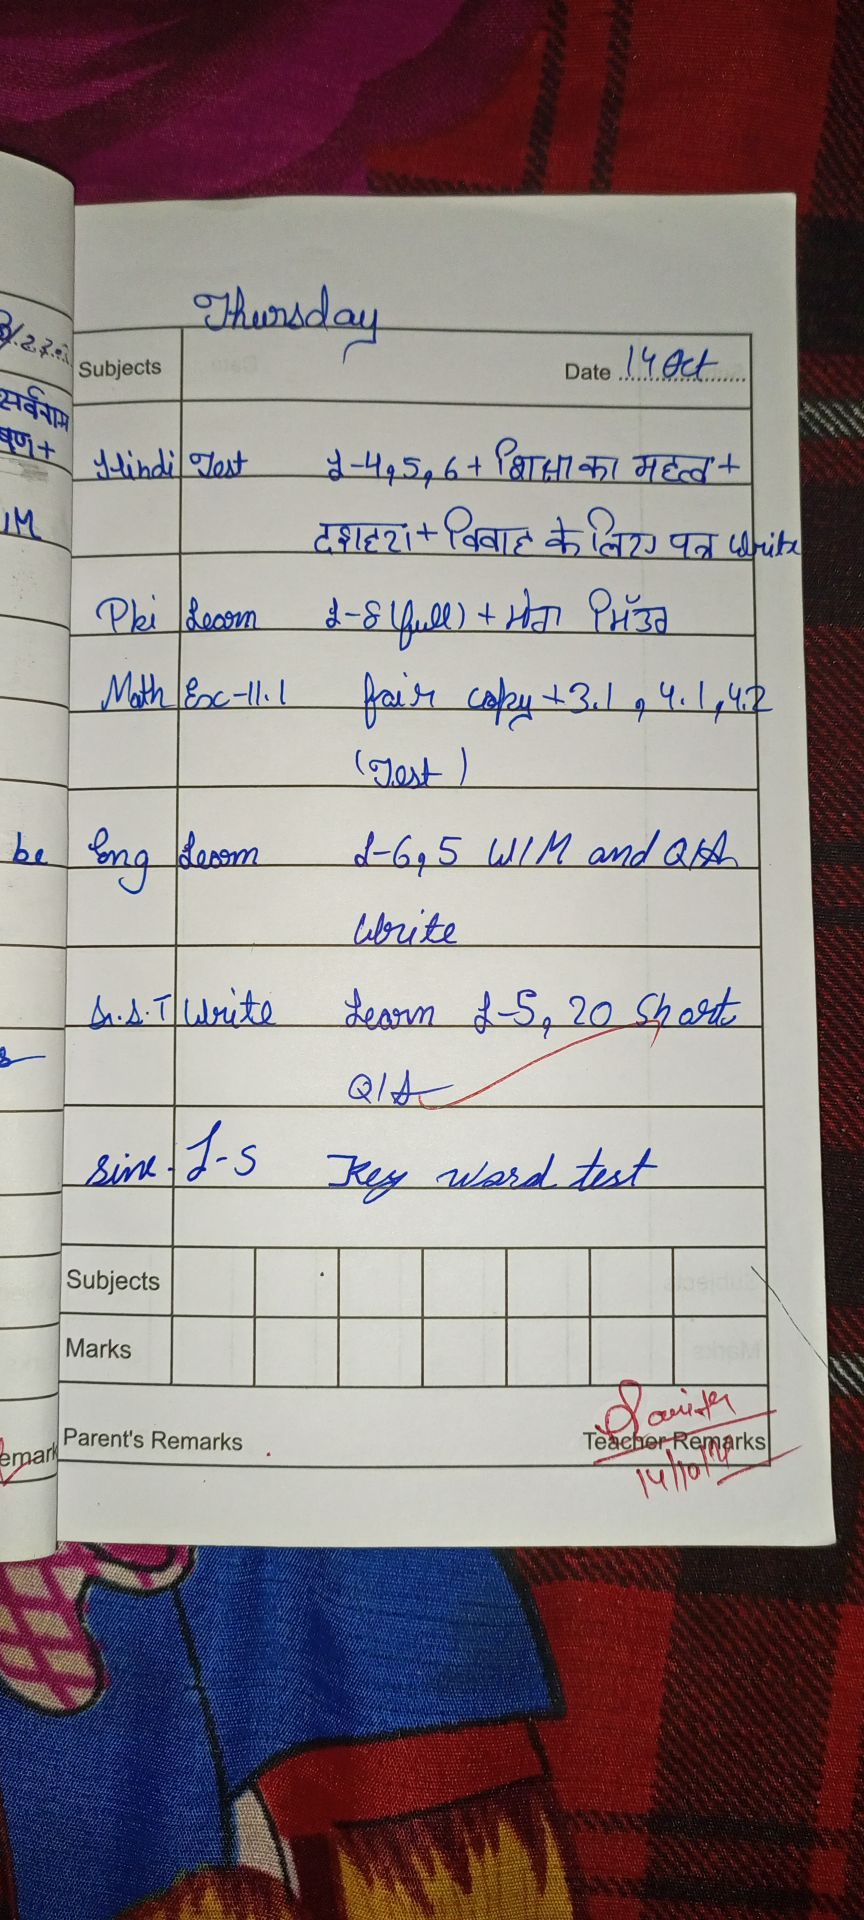 Thursday
Subjects Date 14 Oct
Hindi Test L-4,5,6 + शिक्षा का महत्व +
दशहरा + विवाह के लिए पत्र write
Pbi Learn L-8 (full) + ਮੇਰਾ ਮਿੱਤਰ
Math Exc-11.1 fair copy + 3.1, 4.1, 4.2
(Test)
Eng Learn L-6,5 W/M and Q/A
Write
S.S.T Write Learn L-5, 20 Short
Q/A
Sine. L-5 Key word test
Subjects
Marks
Parent's Remarks Teacher Remarks
14/10/21
सर्वनाम
+
/M
be
emark